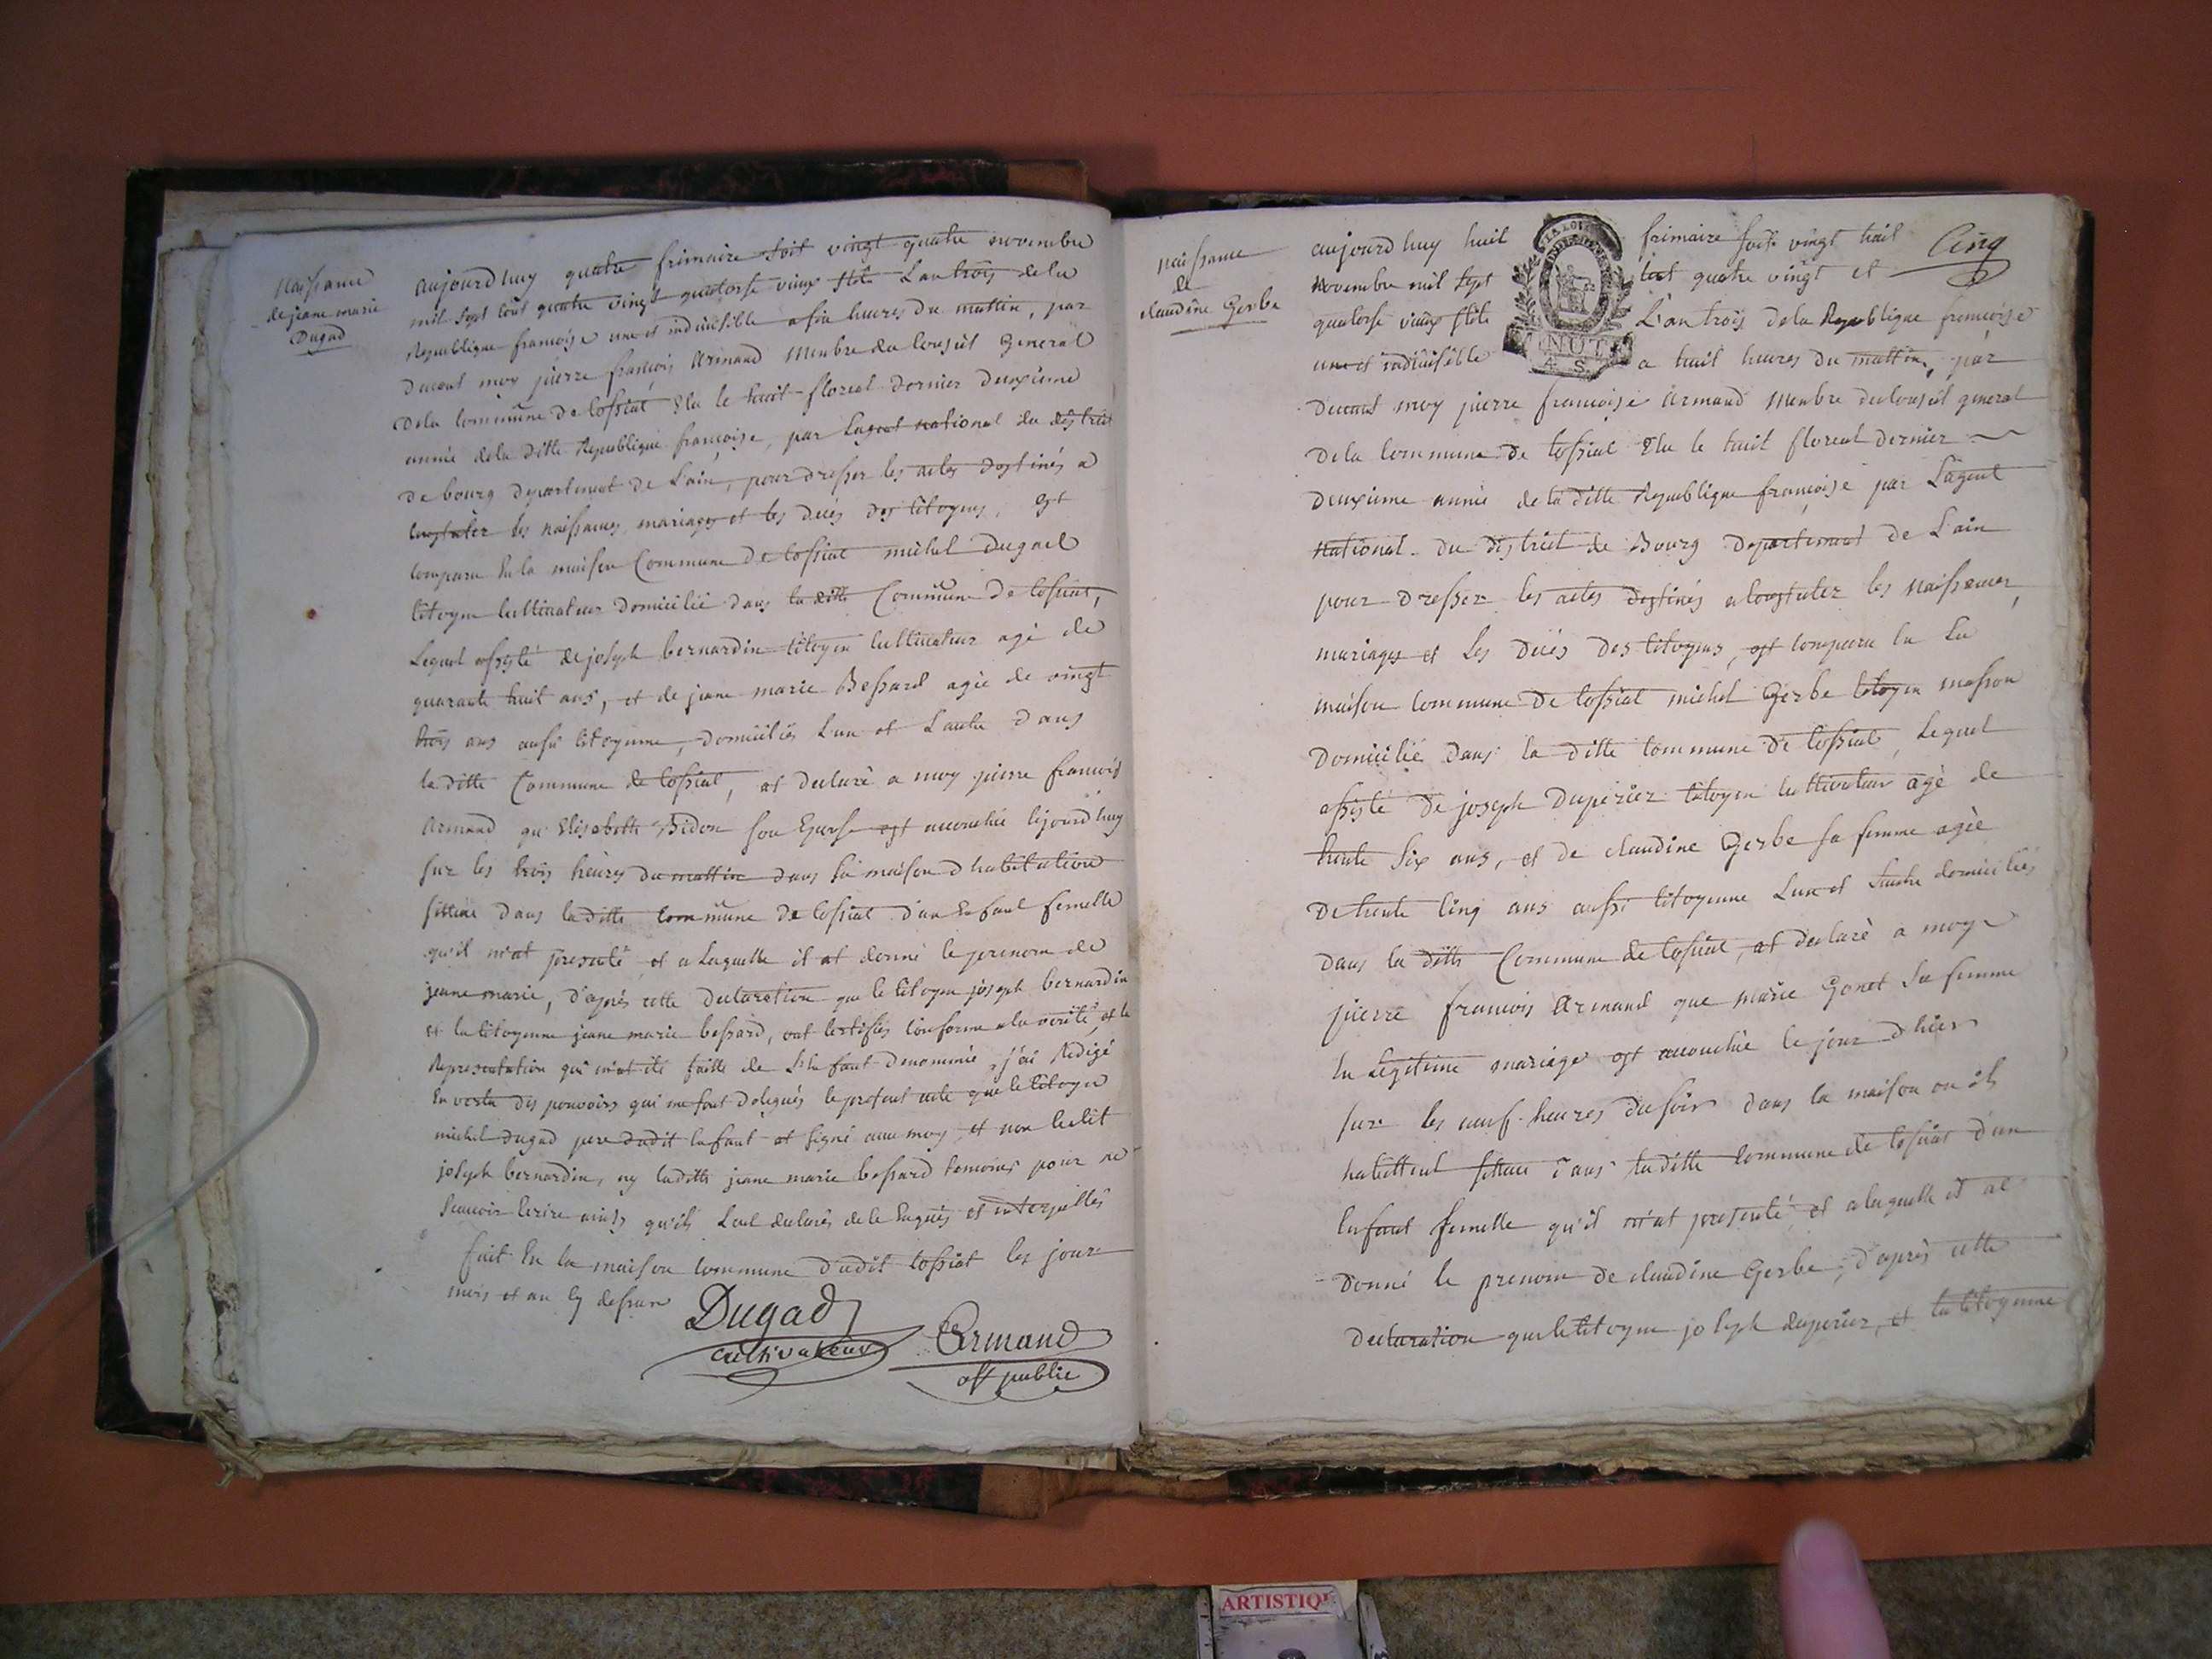 Naissance
de jeane marie
Dugad
aujourd huy quatre frimaire soit vingt quatre novembre
mil sept cent quatre vingt quatorse vieux stile L'an trois de la
Republique francoise une et indivisible a six heures du mattin, par
devant moy pierre françois Armand Membre du Conseil General
de la Commune de Cossiat Elu le huit floreal dernier deuxieme
année de la ditte Republique françoise, par Lagent national du district
de bourg departement de L'ain, pour dresser les actes destinés a
Constater les naissances, mariages et les décés des Citoyens, est
Comparu En la maison Commune de Cossiat michel Dugad
Citoyen Cultivateur Domicilié dans la ditte Commune de Cossiat,
Lequel assisté de joseph bernardin Citoyen Cultivateur agé de
quarante huit ans, et de jeane marie Bessard agée de vingt
trois ans aussi Citoyenne, domiciliés L'un et L'autre dans
la ditte Commune de Cossiat, at declaré a moy pierre francois
Armand qu'Elisabeth Bidon son Epouse est accouchée cejourd'huy
sur les trois heures du mattin dans sa maison d habitation
sittuée dans la ditte Commune de Cossiat d'un Enfant femelle
qu'il m'at presenté et a Laquelle il at donné le prenom de
jeane marie, d'aprés cette declaration que le Citoyen joseph bernardin
et la Citoyenne jeane marie bessard, ont Certifiés Conforme a la verité, et la
Representation qui m'at été faitte de L'Enfant denommée, j'ai Redigé
En vertu des pouvoirs qui me sont delegués le present acte que le Citoyen
michel dugad pere dudit Enfant at signé avec moy, et non ledit
joseph bernardin, ny laditte jeane marie bessard temoins pour ne
Scavoir Ecrire ainsy qu'ils L'ont declarés de le Enquis et interpellés
fait En la maison Commune dudit Cossiat les jour
mois et an Cy dessus
Dugad
Cultivateur
Armand
off public
naissance
de
claudine Gerbe
Cinq
aujourd huy huit frimaire soit vingt huit
Novembre mil sept cent quatre vingt et
quatorse vieux stile L'an trois de la Republique francoise
une et indivisible a huit heures du mattin, par
devant moy pierre francoise Armand Membre du Conseil general
de la Commune de Cossiat Elu le huit floreal dernier
deuxieme année de la ditte Republique françoise par L'agent
national du district de Bourg departement de L'ain
pour dresser les actes destinés a Constater les naissances,
mariages et Les décés des Citoyens, est Comparu En La
maison Commune de Cossiat michel Gerbe Citoyen masson
Domicilié dans la ditte Commune de Cossiat, Lequel
assisté de joseph Duperier Citoyen Cultivateur agé de
trente six ans, et de claudine Gerbe sa femme agée
de trente Cinq ans aussi Citoyenne L'un et L'autre domiciliés
dans la ditte Commune de Cossiat, at declaré a moy
pierre francois Armand que marie Gonet sa femme
En Legitime mariage est accouchée le jour d'hier
sur les neuf heures du soir dans la maison ou ils
habittent sittuée dans laditte Commune de Cossiat d'un
Enfant femelle qu'il m'at presenté et a laquelle il at
Donné le prenom de claudine Gerbe, d'aprés cette
declaration que le Citoyen joseph duperier, et la Citoyenne
NUT
4 S
ARTISTIQ